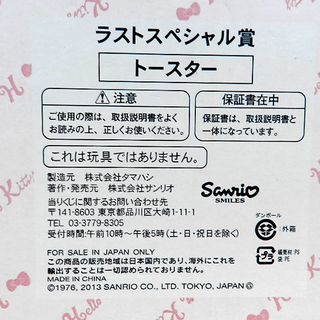 ラストスペシャル賞
トースター
注意
ご使用の際は、取扱説明書をよく
お読みの上、正しくお使いください。
保証書在中
保証書は、取扱説明書と
一体になっています。
これは玩具ではありません。
製造元 株式会社タマハシ
著作・発売元 株式会社サンリオ
当りくじに関するお問い合わせ先
〒141-8603 東京都品川区大崎1-11-1
TEL 03-3779-8305
受付時間:午前10時〜午後5時(土・日・祝日を除く)
Sanrio
SMILES
ダンボール
:外箱
プラ
FOR SALE IN JAPAN ONLY
この商品の販売地域は日本国内であり、海外にこれを
輸出することは一切認められておりません。
MADE IN CHINA
©1976, 2013 SANRIO CO., LTD. TOKYO, JAPAN
Hello
Kitty